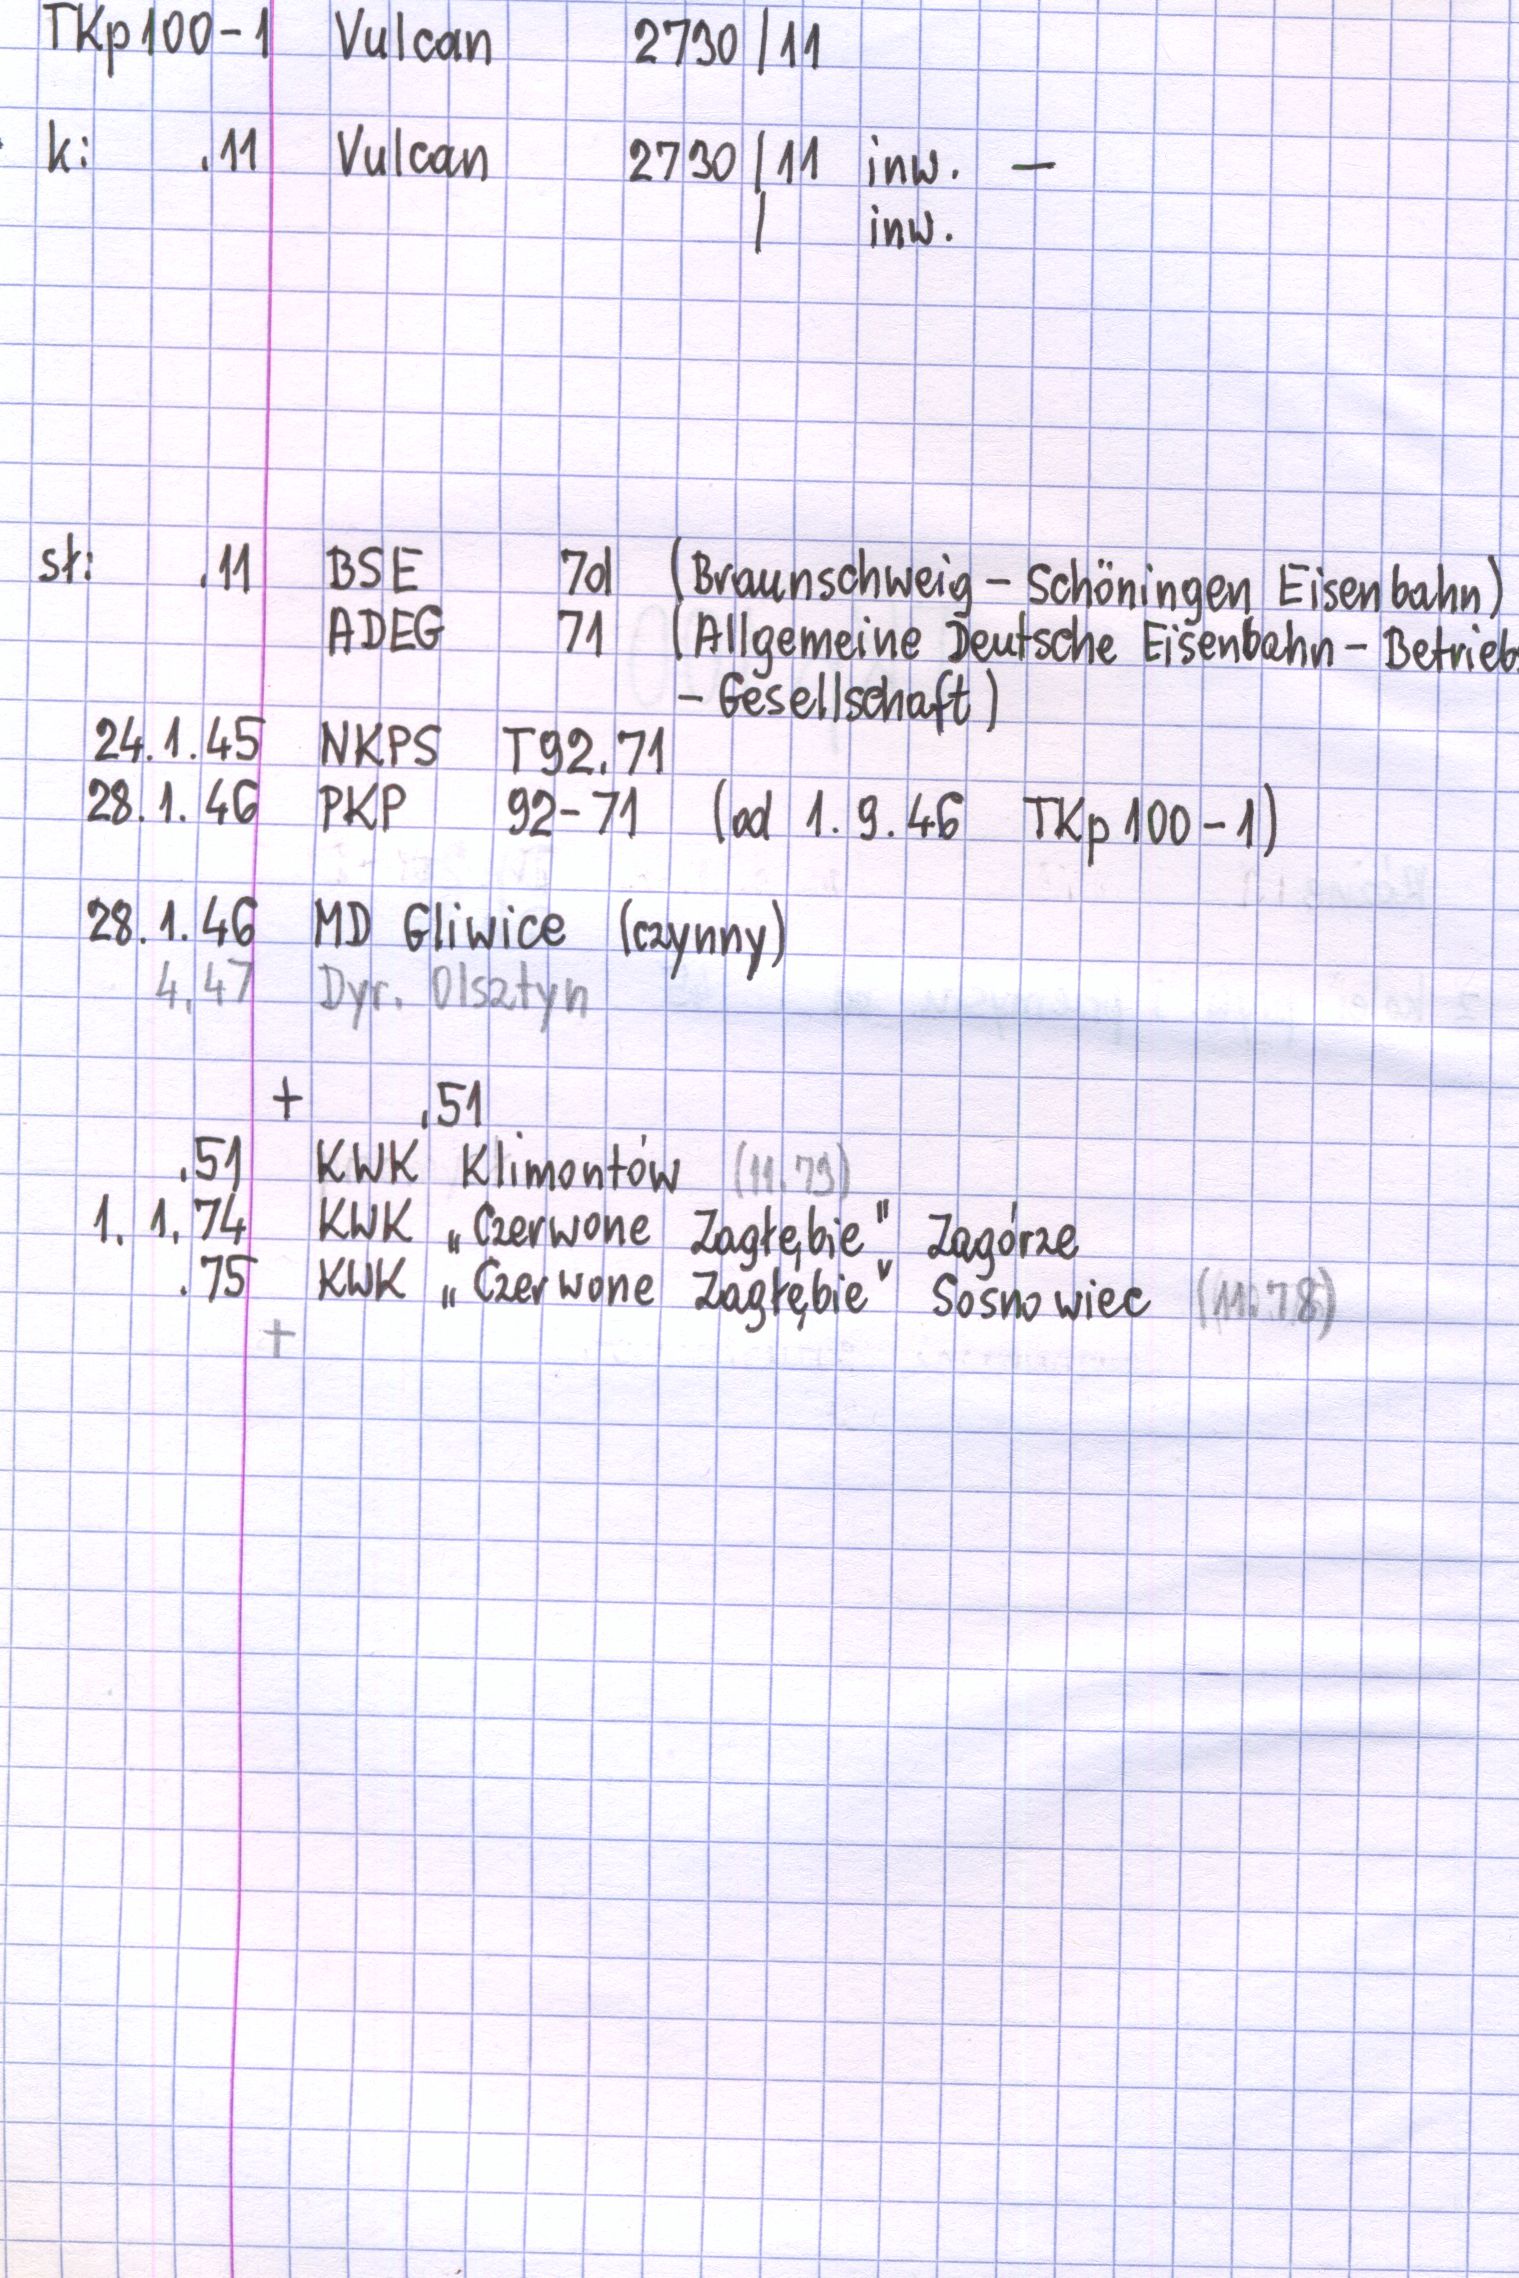 TKp100-1 Vulcan 2730/11
k: .11 Vulcan 2730/11 inw. —
/ inw.
sł: .11 BSE 7d (Braunschweig - Schöningen Eisenbahn)
ADEG 71 (Allgemeine Deutsche Eisenbahn - Betriebs
- Gesellschaft)
24.1.45 NKPS T92.71
28.1.46 PKP 92-71 (od 1.9.46 TKp100-1)
28.1.46 MD Gliwice (czynny)
4.47 Dyr. Olsztyn
+ .51
.51 KWK Klimontów (11.73)
1.1.74 KWK „Czerwone Zagłębie" Zagórze
.75 KWK „Czerwone Zagłębie" Sosnowiec (11.78)
+